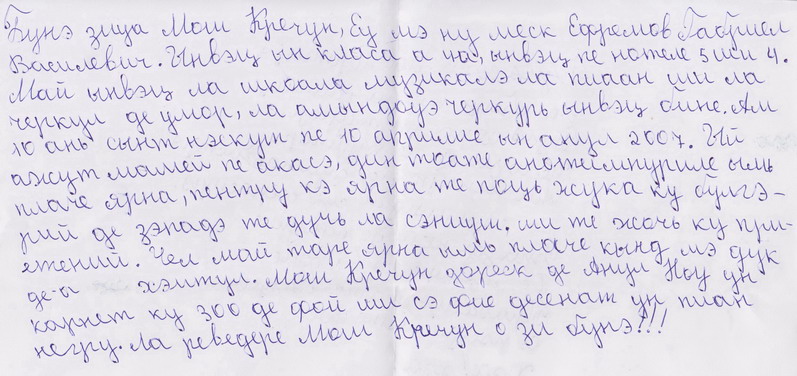 Бунэ зиуа Мош Крэчун, Еу мэ ну меск Ефремов Габриел
Василевич. Ынвэц ын класа а не, ынвэц пе нотеле 5 ши 4.
Май ынвэц ла школа музикалэ ла пиаан ши ла
черкул де умор, ла амындоуэ черкурь ынвэц бине. Ам
10 ань сынт нэскут пе 10 априлие ын анул 2007. Ый
ажут мамей пе акасэ, дин тоате анотимпуриле ымь
плаче ярна, пентру кэ ярна те поць жука ку булгэ-
рий де зэпадэ те дучь ла сэниуш. ши те жочь ку при-
етений. Чел май таре ярна ымь плаче кынд мэ дук
де-а хэитул. Мош Крэчун дореск де Анул Ноу ун
карнет ку 300 де фой ши сэ фие десенат ун пиан
негру. Ла реведере Мош Крэчун о зи бунэ!!!